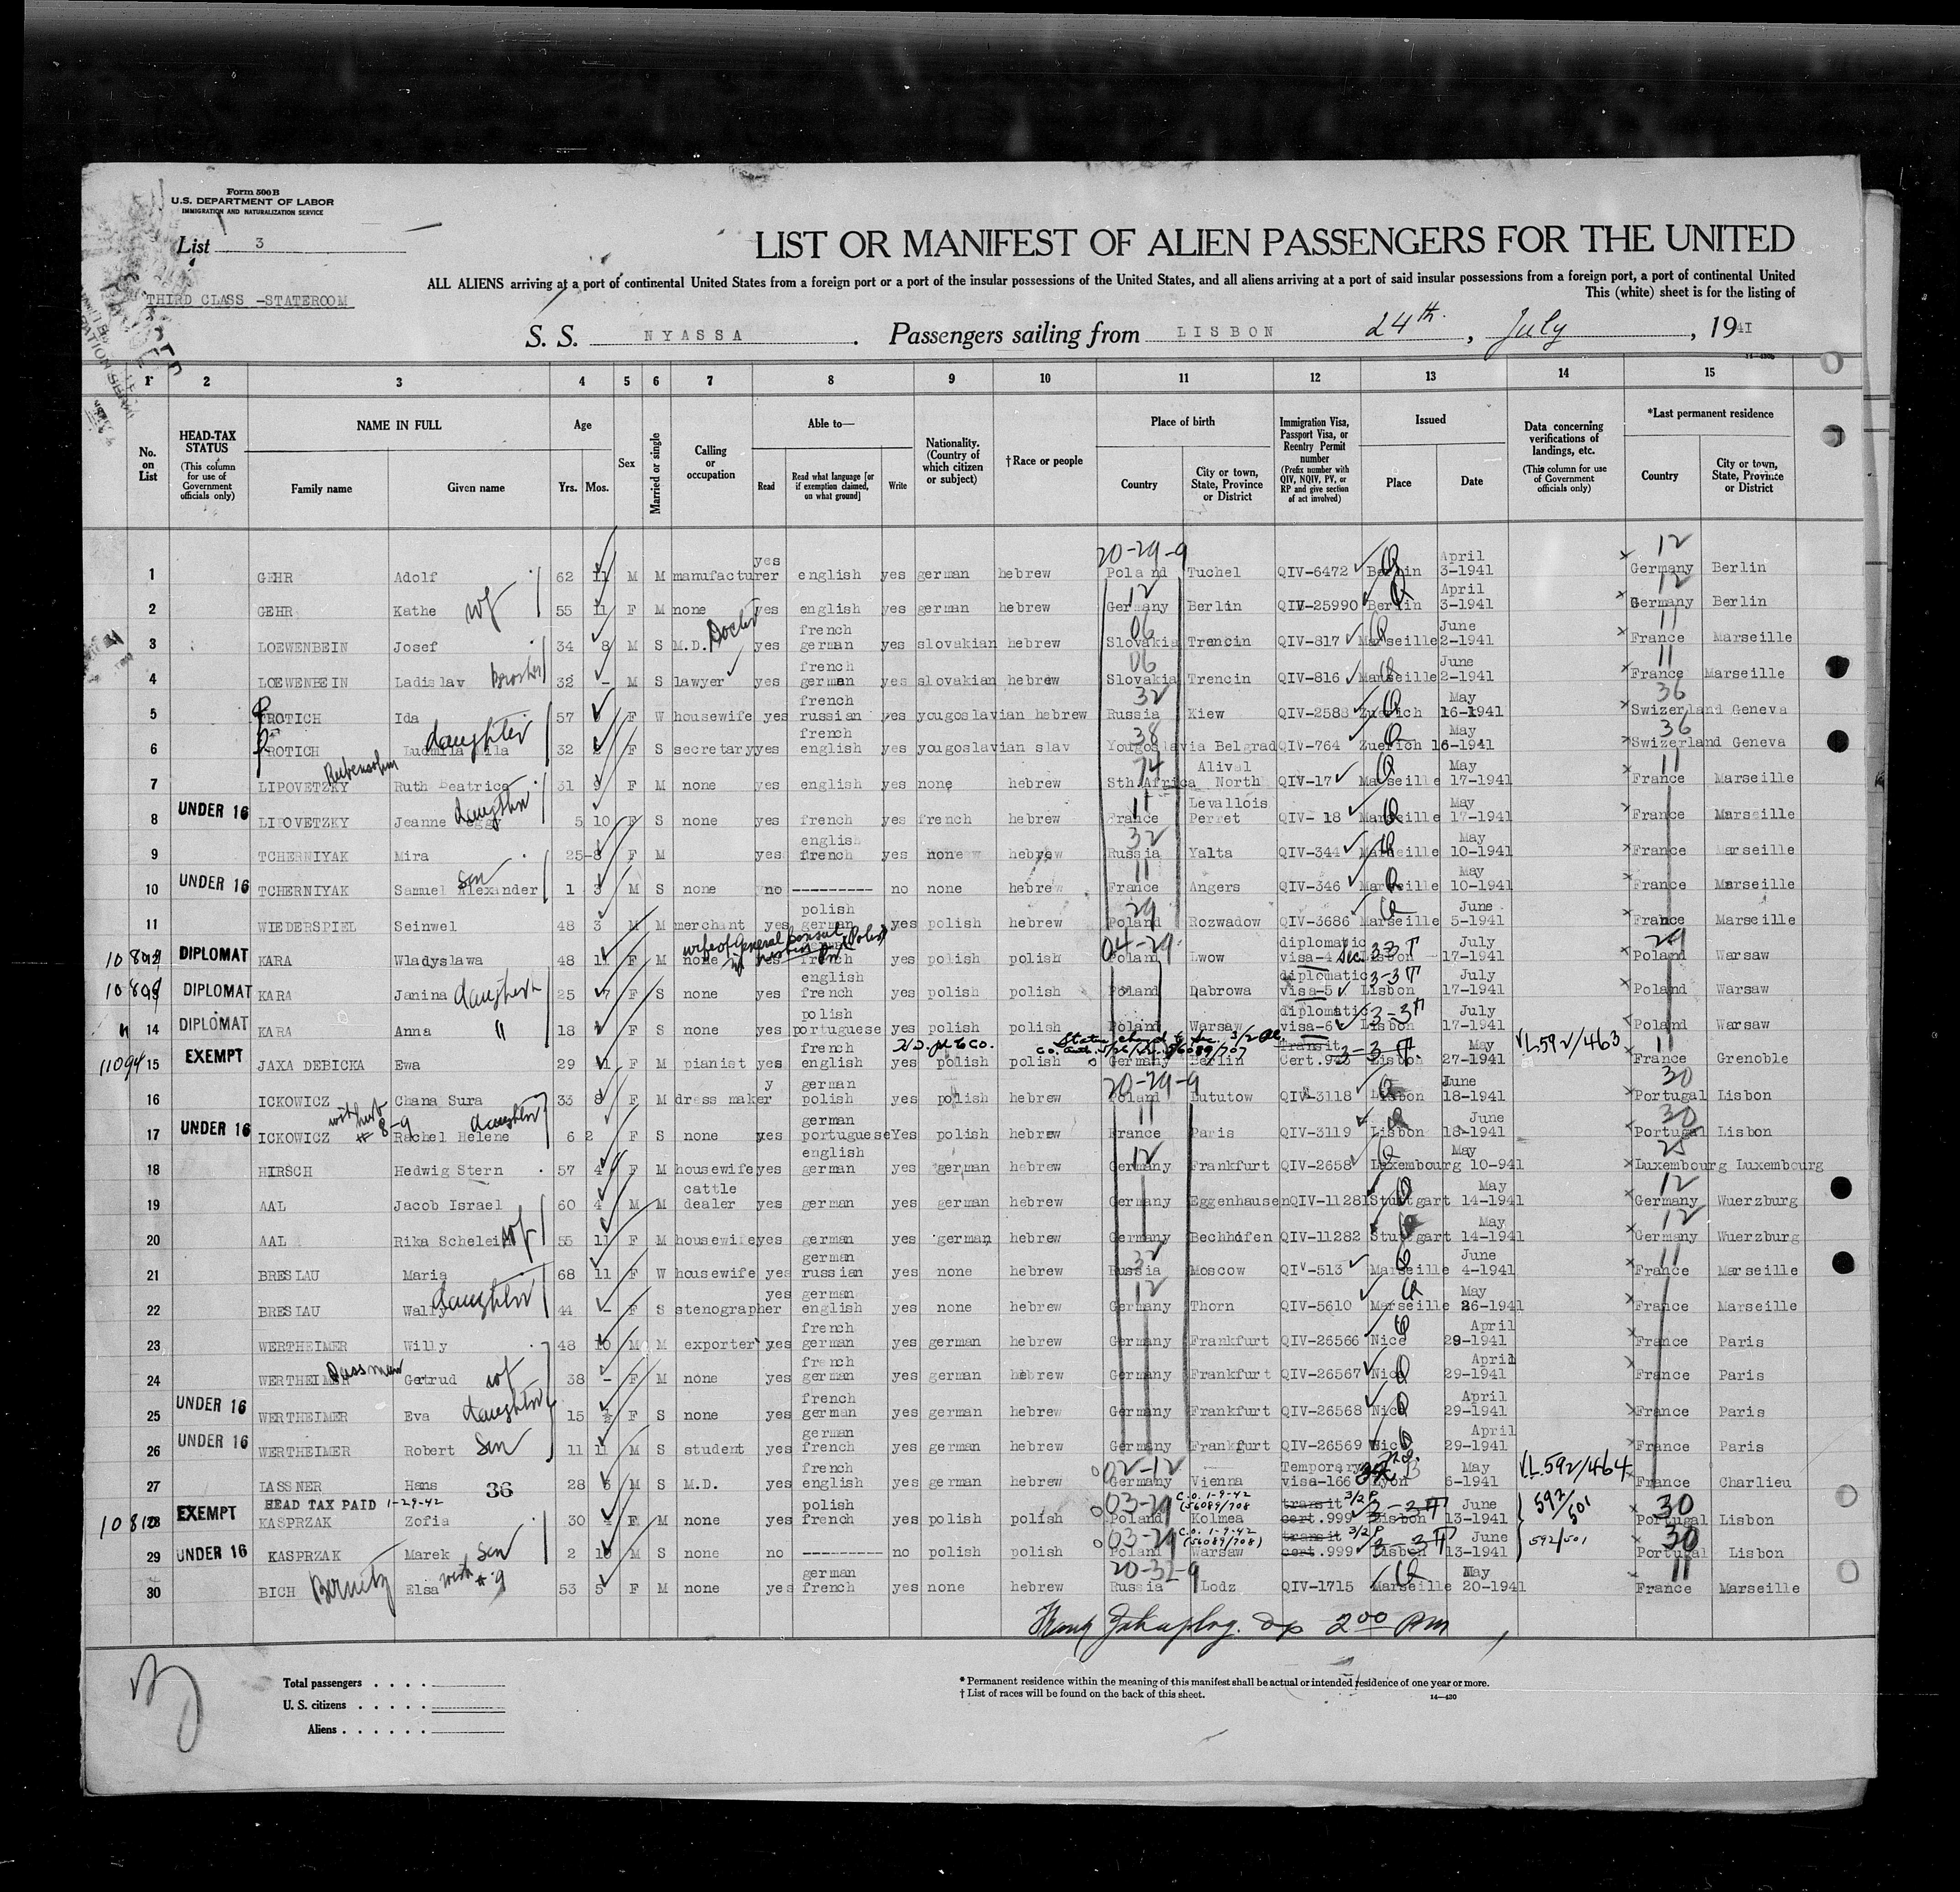 Form 500B
U.S. DEPARTMENT OF LABOR
IMMIGRATION AND NATURALIZATION SERVICE
List 3
THIRD CLASS -STATEROOM
LIST OR MANIFEST OF ALIEN PASSENGERS FOR THE UNITED
ALL ALIENS arriving at a port of continental United States from a foreign port or a port of the insular possessions of the United States, and all aliens arriving at a port of said insular possessions from a foreign port, a port of continental United
This (white) sheet is for the listing of
S. S. NYASSA. Passengers sailing from LISBON 24th., July, 1941
1 2 3 4 5 6 7 8 9 10 11 12 13 14 15
No. on List
HEAD-TAX STATUS (This column for use of Government officials only)
NAME IN FULL Family name Given name
Age Yrs. Mos.
Sex
Married or single
Calling or occupation
Able to— Read Read what language [or if exemption claimed, on what ground] Write
Nationality. (Country of which citizen or subject)
†Race or people
Place of birth Country City or town, State, Province or District
Immigration Visa, Passport Visa, or Reentry Permit number (Prefix number with QIV, NQIV, PV, or RP and give section of act involved)
Issued Place Date
Data concerning verifications of landings, etc. (This column for use of Government officials only)
*Last permanent residence Country City or town, State, Province or District
1 GEHR Adolf 62 11 M M manufacturer yes english yes german hebrew 20-29-9 Poland Tuchel QIV-6472 Berlin April 3-1941 12 Germany Berlin
2 GEHR Kathe wf 55 11 F M none yes english yes german hebrew 12 Germany Berlin QIV-25990 Berlin April 3-1941 12 Germany Berlin
3 LOEWENBEIN Josef 34 8 M S M.D. Doctor yes french german yes slovakian hebrew 06 Slovakia Trencin QIV-817 Marseille June 2-1941 11 France Marseille
4 LOEWENBEIN Ladislav Brother 32 - M S lawyer yes french german yes slovakian hebrew 06 Slovakia Trencin QIV-816 Marseille June 2-1941 11 France Marseille
5 PROTICH Ida 57 F W housewife yes french russian yes yougoslavian hebrew 32 Russia Kiew QIV-2588 Zuerich May 16-1941 36 Swizerland Geneva
6 PROTICH Ludmila Mila daughter 32 F S secretary yes french english yes yougoslavian slav 38 Yougoslavia Belgrad QIV-764 Zuerich May 16-1941 36 Swizerland Geneva
7 LIPOVETZKY Rubensohn Ruth Beatrice 31 9 F M none yes english yes none hebrew 74 Sth.Africa Alival North QIV-17 Marseille May 17-1941 11 France Marseille
8 UNDER 16 LIPOVETZKY Jeanne Peggy daughter 5 10 F S none yes french yes french hebrew 11 France Levallois Perret QIV-18 Marseille May 17-1941 France Marseille
9 TCHERNIYAK Mira 25-8 F M yes english french yes none hebrew 32 Russia Yalta QIV-344 Marseille May 10-1941 France Marseille
10 UNDER 16 TCHERNIYAK Samuel Alexander Son 1 3 M S none no ---------- no none hebrew 11 France Angers QIV-346 Marseille May 10-1941 France Marseille
11 WIEDERSPIEL Seinwel 48 3 M M merchant yes polish german yes polish hebrew 29 Poland Rozwadow QIV-3686 Marseille June 5-1941 France Marseille
12 DIPLOMAT KARA Wladyslawa 48 11 F M none wife of General Consul yes french yes polish polish 04-29 Poland Lwow diplomatic visa-4 Sec. 3-3 Lisbon July 17-1941 29 Poland Warsaw
13 DIPLOMAT KARA Janina daughter 25 7 F S none yes english french yes polish polish Poland Dabrowa diplomatic visa-5 3-3 Lisbon July 17-1941 Poland Warsaw
14 DIPLOMAT KARA Anna " 18 F S none yes polish portuguese yes polish polish Poland Warsaw diplomatic visa-6 3-3 Lisbon July 17-1941 Poland Warsaw
11094 15 EXEMPT JAXA DEBICKA Ewa 29 11 F M pianist yes french english yes polish polish Germany Berlin transit Cert. 3-3 Lisbon May 27-1941 VL592/463 11 France Grenoble
16 ICKOWICZ Chana Sura 33 8 F M dress maker y german polish yes polish hebrew 20-29-9 Poland Lututow QIV-3118 Lisbon June 18-1941 30 Portugal Lisbon
17 UNDER 16 ICKOWICZ with # 8-9 Rachel Helene daughter 6 2 F S none yes german portuguese Yes polish hebrew 11 France Paris QIV-3119 Lisbon June 18-1941 30 Portugal Lisbon
18 HIRSCH Hedwig Stern 57 4 F M housewife yes english german yes german hebrew 12 Germany Frankfurt QIV-2658 Luxembourg May 10-941 25 Luxembourg Luxembourg
19 AAL Jacob Israel 60 4 M M cattle dealer yes german yes german hebrew Germany Eggenhausen QIV-11281 Stuttgart May 14-1941 12 Germany Wuerzburg
20 AAL Rika Schelein wf 55 11 F M housewife yes german yes german hebrew Germany Bechhofen QIV-11282 Stuttgart May 14-1941 12 Germany Wuerzburg
21 BRESLAU Maria 68 11 F W housewife yes german russian yes none hebrew 32 Russia Moscow QIV-513 Marseille June 4-1941 11 France Marseille
22 BRESLAU Wally daughter 44 - F S stenographer yes german english yes none hebrew 12 Germany Thorn QIV-5610 Marseille May 26-1941 France Marseille
23 WERTHEIMER Willy 48 10 M M exporter yes french german yes german hebrew Germany Frankfurt QIV-26566 Nice April 29-1941 France Paris
24 WERTHEIMER Gertrud wf 38 - F M none yes french german yes german hebrew Germany Frankfurt QIV-26567 Nice April 29-1941 France Paris
25 UNDER 16 WERTHEIMER Eva daughter 15 F S none yes french german yes german hebrew Germany Frankfurt QIV-26568 Nice April 29-1941 France Paris
26 UNDER 16 WERTHEIMER Robert Son 11 11 M S student yes german french yes german hebrew Germany Frankfurt QIV-26569 Nice April 29-1941 France Paris
27 LASSNER Hans 36 28 6 M S M.D. yes french english yes german hebrew 02-12 Germany Vienna Temporary visa-166 Lyon May 6-1941 VL592/464 France Charlieu
28 EXEMPT HEAD TAX PAID 1-29-42 KASPRZAK Zofia 30 F M none yes polish french yes polish polish 03-29 C.O. 1-9-42 (56089/708 Poland Kolmea transit cert.999 3/2 Lisbon June 13-1941 592/501 30 Portugal Lisbon
29 UNDER 16 KASPRZAK Marek Son 2 10 M S none no --------- no polish polish 03-29 C.O. 1-9-42 (56089/708) Poland Warsaw transit cert.999 3/2 Lisbon June 13-1941 592/501 30 Portugal Lisbon
30 BICH Elsa with #9 53 5 F M none yes german french yes none hebrew 20-32-9 Russia Lodz QIV-1715 Marseille May 20-1941 11 France Marseille
2 00 PM
Total passengers . . . .
U. S. citizens . . . . .
Aliens . . . . . .
* Permanent residence within the meaning of this manifest shall be actual or intended residence of one year or more.
† List of races will be found on the back of this sheet.
14—430